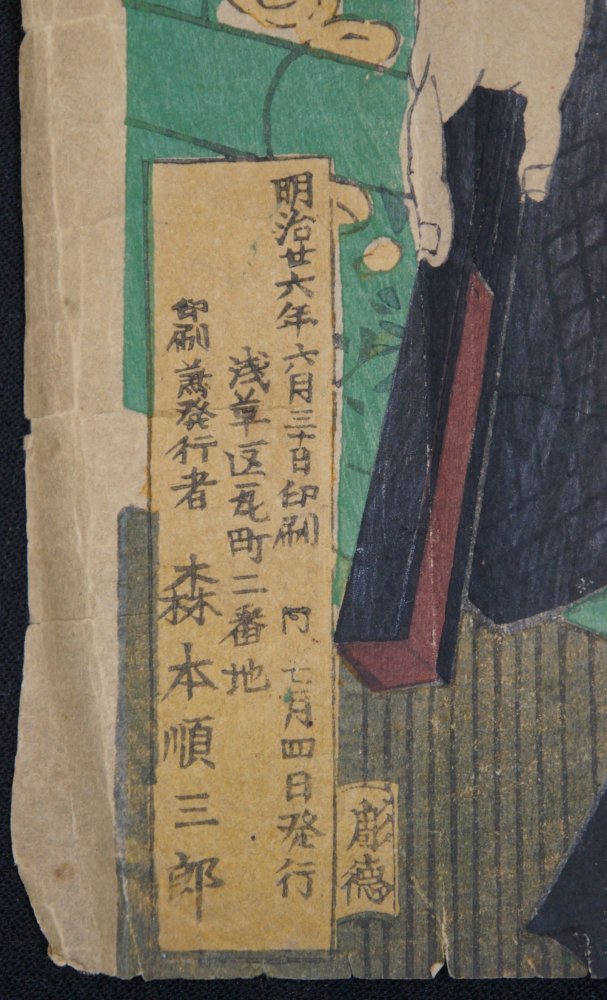 明治廿六年六月三十日印刷 同 七月四日発行
浅草区瓦町二番地
印刷兼発行者 森本順三郎
彫徳